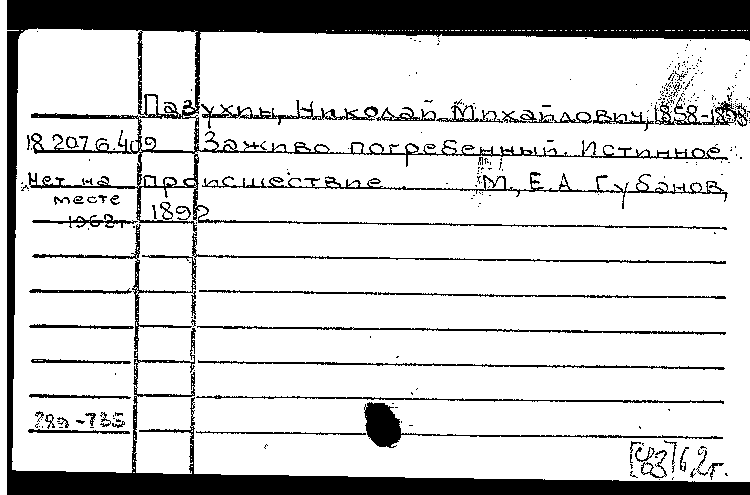 Пазухин, Николай Михайлович, 1858-1898
18.207.6.409 Заживо погребенный. Истинное
Нет на происшествие. М., Е.А. Губанов,
месте 1892
1962г
289-735
62г.